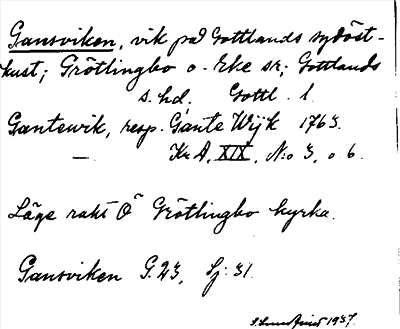 Gansviken, vik på Gottlands sydöst-
kust; Grötlingbo o. Eke sn; Gottlands
s. hd, Gottl. l.
Gantewik, resp. Gante Wijk 1763.
— Kr A, XIX, N:o 3, o 6.
Läge rakt Ö Grötlingbo kyrka.
Gansviken G. 23, Sj: 31.
1937.